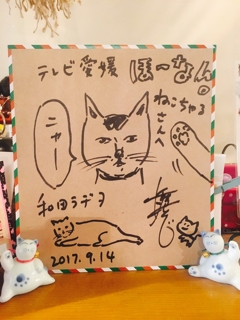 テレビ愛媛
ほーなん。
ねこちゃる
さんへ
ニャー
和田ラヂヲ
2017.9.14